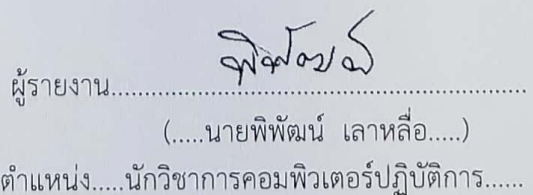 ผู้รายงาน......พิพัฒน์......
(.....นายพิพัฒน์ เลาหลื่อ.....)
ตำแหน่ง.....นักวิชาการคอมพิวเตอร์ปฏิบัติการ......